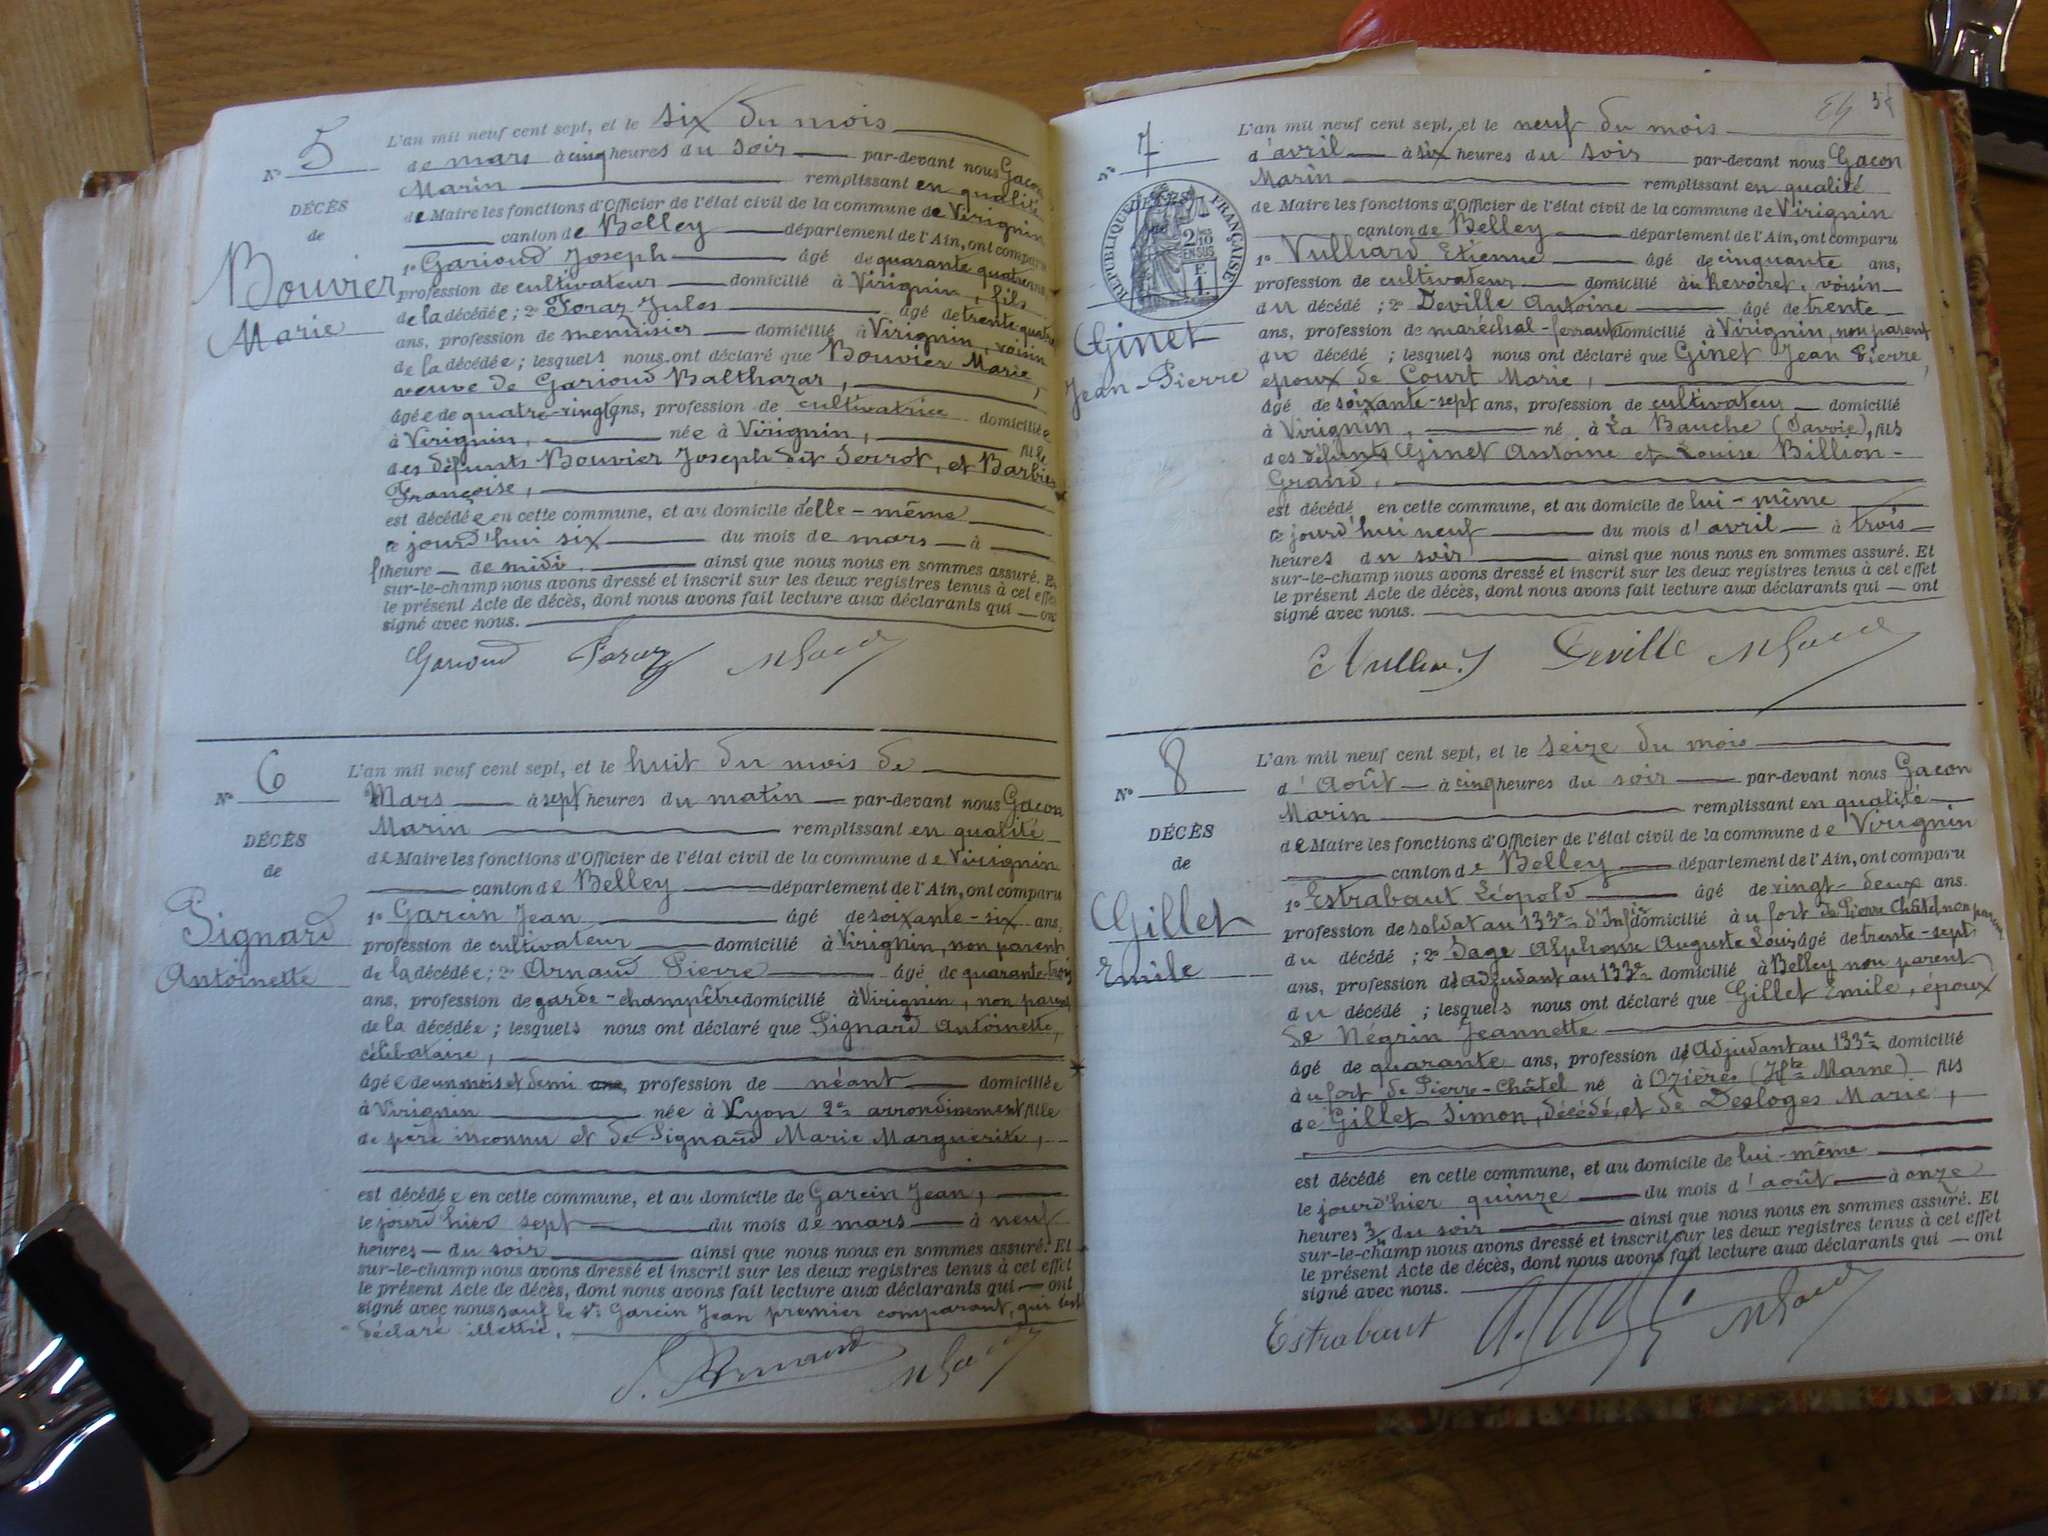 N° 5
DÉCÈS
de
Bouvier
Marie
L'an mil neuf cent sept, et le six du mois
de mars à cinq heures du soir par-devant nous Gacon
Marin remplissant en qualité
de Maire les fonctions d'Officier de l'état civil de la commune de Virignin
canton de Belley département de l'Ain, ont comparu
1° Garioud Joseph âgé de quarante quatre ans,
profession de cultivateur domicilié à Virignin, fils
de la décédée; 2° Foraz Jules âgé de trente-quatre
ans, profession de menuisier domicilié à Virignin, voisin
de la décédée; lesquels nous ont déclaré que Bouvier Marie,
veuve de Garioud Balthazar,
âgée de quatre-vingt ans, profession de cultivatrice domiciliée
à Virignin, née à Virignin, fille
des défunts Bouvier Joseph dit Serrot, et Barbier
Françoise,
est décédée en cette commune, et au domicile d'elle-même
ce jourd'hui six du mois de mars à
heure de midi. ainsi que nous nous en sommes assuré. Et
sur-le-champ nous avons dressé et inscrit sur les deux registres tenus à cet effet
le présent Acte de décès, dont nous avons fait lecture aux déclarants qui ont
signé avec nous.
Garioud Foraz MGacon
N° 6
DÉCÈS
de
Pignard
Antoinette
L'an mil neuf cent sept, et le huit du mois de
Mars à sept heures du matin par-devant nous Gacon
Marin remplissant en qualité
de Maire les fonctions d'Officier de l'état civil de la commune de Virignin
canton de Belley département de l'Ain, ont comparu
1° Garcin Jean âgé de soixante-six ans,
profession de cultivateur domicilié à Virignin, non parent
de la décédée; 2° Arnaud Pierre âgé de quarante-trois
ans, profession de garde-champêtre domicilié à Virignin, non parent
de la décédée; lesquels nous ont déclaré que Pignard Antoinette,
célibataire,
âgée de un mois et demi ans, profession de néant domiciliée
à Virignin née à Lyon 2e arrondissement fille
de père inconnu et de Pignard Marie Marguerite,
est décédée en cette commune, et au domicile de Garcin Jean,
le jourd'hier sept du mois de mars à neuf
heures du soir ainsi que nous nous en sommes assuré. Et
sur-le-champ nous avons dressé et inscrit sur les deux registres tenus à cet effet
le présent Acte de décès, dont nous avons fait lecture aux déclarants qui ont
signé avec nous sauf le Sr Garcin Jean premier comparant, qui s'est
déclaré illettré.
P. Arnaud MGacon
54
N° 7
DÉCÈS
RÉPUBLIQUE FRANÇAISE
2/10 EN SUS
1 F.
Ginet
Jean-Pierre
L'an mil neuf cent sept, et le neuf du mois
d'avril à six heures du soir par-devant nous Gacon
Marin remplissant en qualité
de Maire les fonctions d'Officier de l'état civil de la commune de Virignin
canton de Belley département de l'Ain, ont comparu
1° Vulliard Etienne âgé de cinquante ans,
profession de cultivateur domicilié à Revoiret, voisin
du décédé; 2° Deville Antoine âgé de trente
ans, profession de maréchal-ferrant domicilié à Virignin, non parent
du décédé; lesquels nous ont déclaré que Ginet Jean Pierre,
époux de Court Marie,
âgé de soixante-sept ans, profession de cultivateur domicilié
à Virignin, né à La Bauche (Savoie), fils
des défunts Ginet Antoine et Louise Billion-
Grand,
est décédé en cette commune, et au domicile de lui-même
ce jourd'hui neuf du mois d'avril à trois
heures du soir ainsi que nous nous en sommes assuré. Et
sur-le-champ nous avons dressé et inscrit sur les deux registres tenus à cet effet
le présent Acte de décès, dont nous avons fait lecture aux déclarants qui ont
signé avec nous.
Deville MGacon
N° 8
DÉCÈS
de
Gillet
Emile
L'an mil neuf cent sept, et le seize du mois
d'Août à cinq heures du soir par-devant nous Gacon
Marin remplissant en qualité
de Maire les fonctions d'Officier de l'état civil de la commune de Virignin
canton de Belley département de l'Ain, ont comparu
1° Estrabaut Léopold âgé de vingt-deux ans.
profession de soldat au 133e d'Infie domicilié au fort de Pierre Châtel non parent
du décédé; 2° Sage Alphonse Auguste Louis âgé de trente-sept
ans, profession d'Adjudant au 133e domicilié à Belley non parent
du décédé; lesquels nous ont déclaré que Gillet Emile, époux
de Négrin Jeannette
âgé de quarante ans, profession d'Adjudant au 133e domicilié
au fort de Pierre-Châtel né à Ozières (Hte Marne) fils
de Gillet Simon, décédé, et de Desloges Marie,
est décédé en cette commune, et au domicile de lui-même
le jourd'hier quinze du mois d'août à onze
heures 3/4 du soir ainsi que nous nous en sommes assuré. Et
sur-le-champ nous avons dressé et inscrit sur les deux registres tenus à cet effet
le présent Acte de décès, dont nous avons fait lecture aux déclarants qui ont
signé avec nous.
Estrabaut MGacon